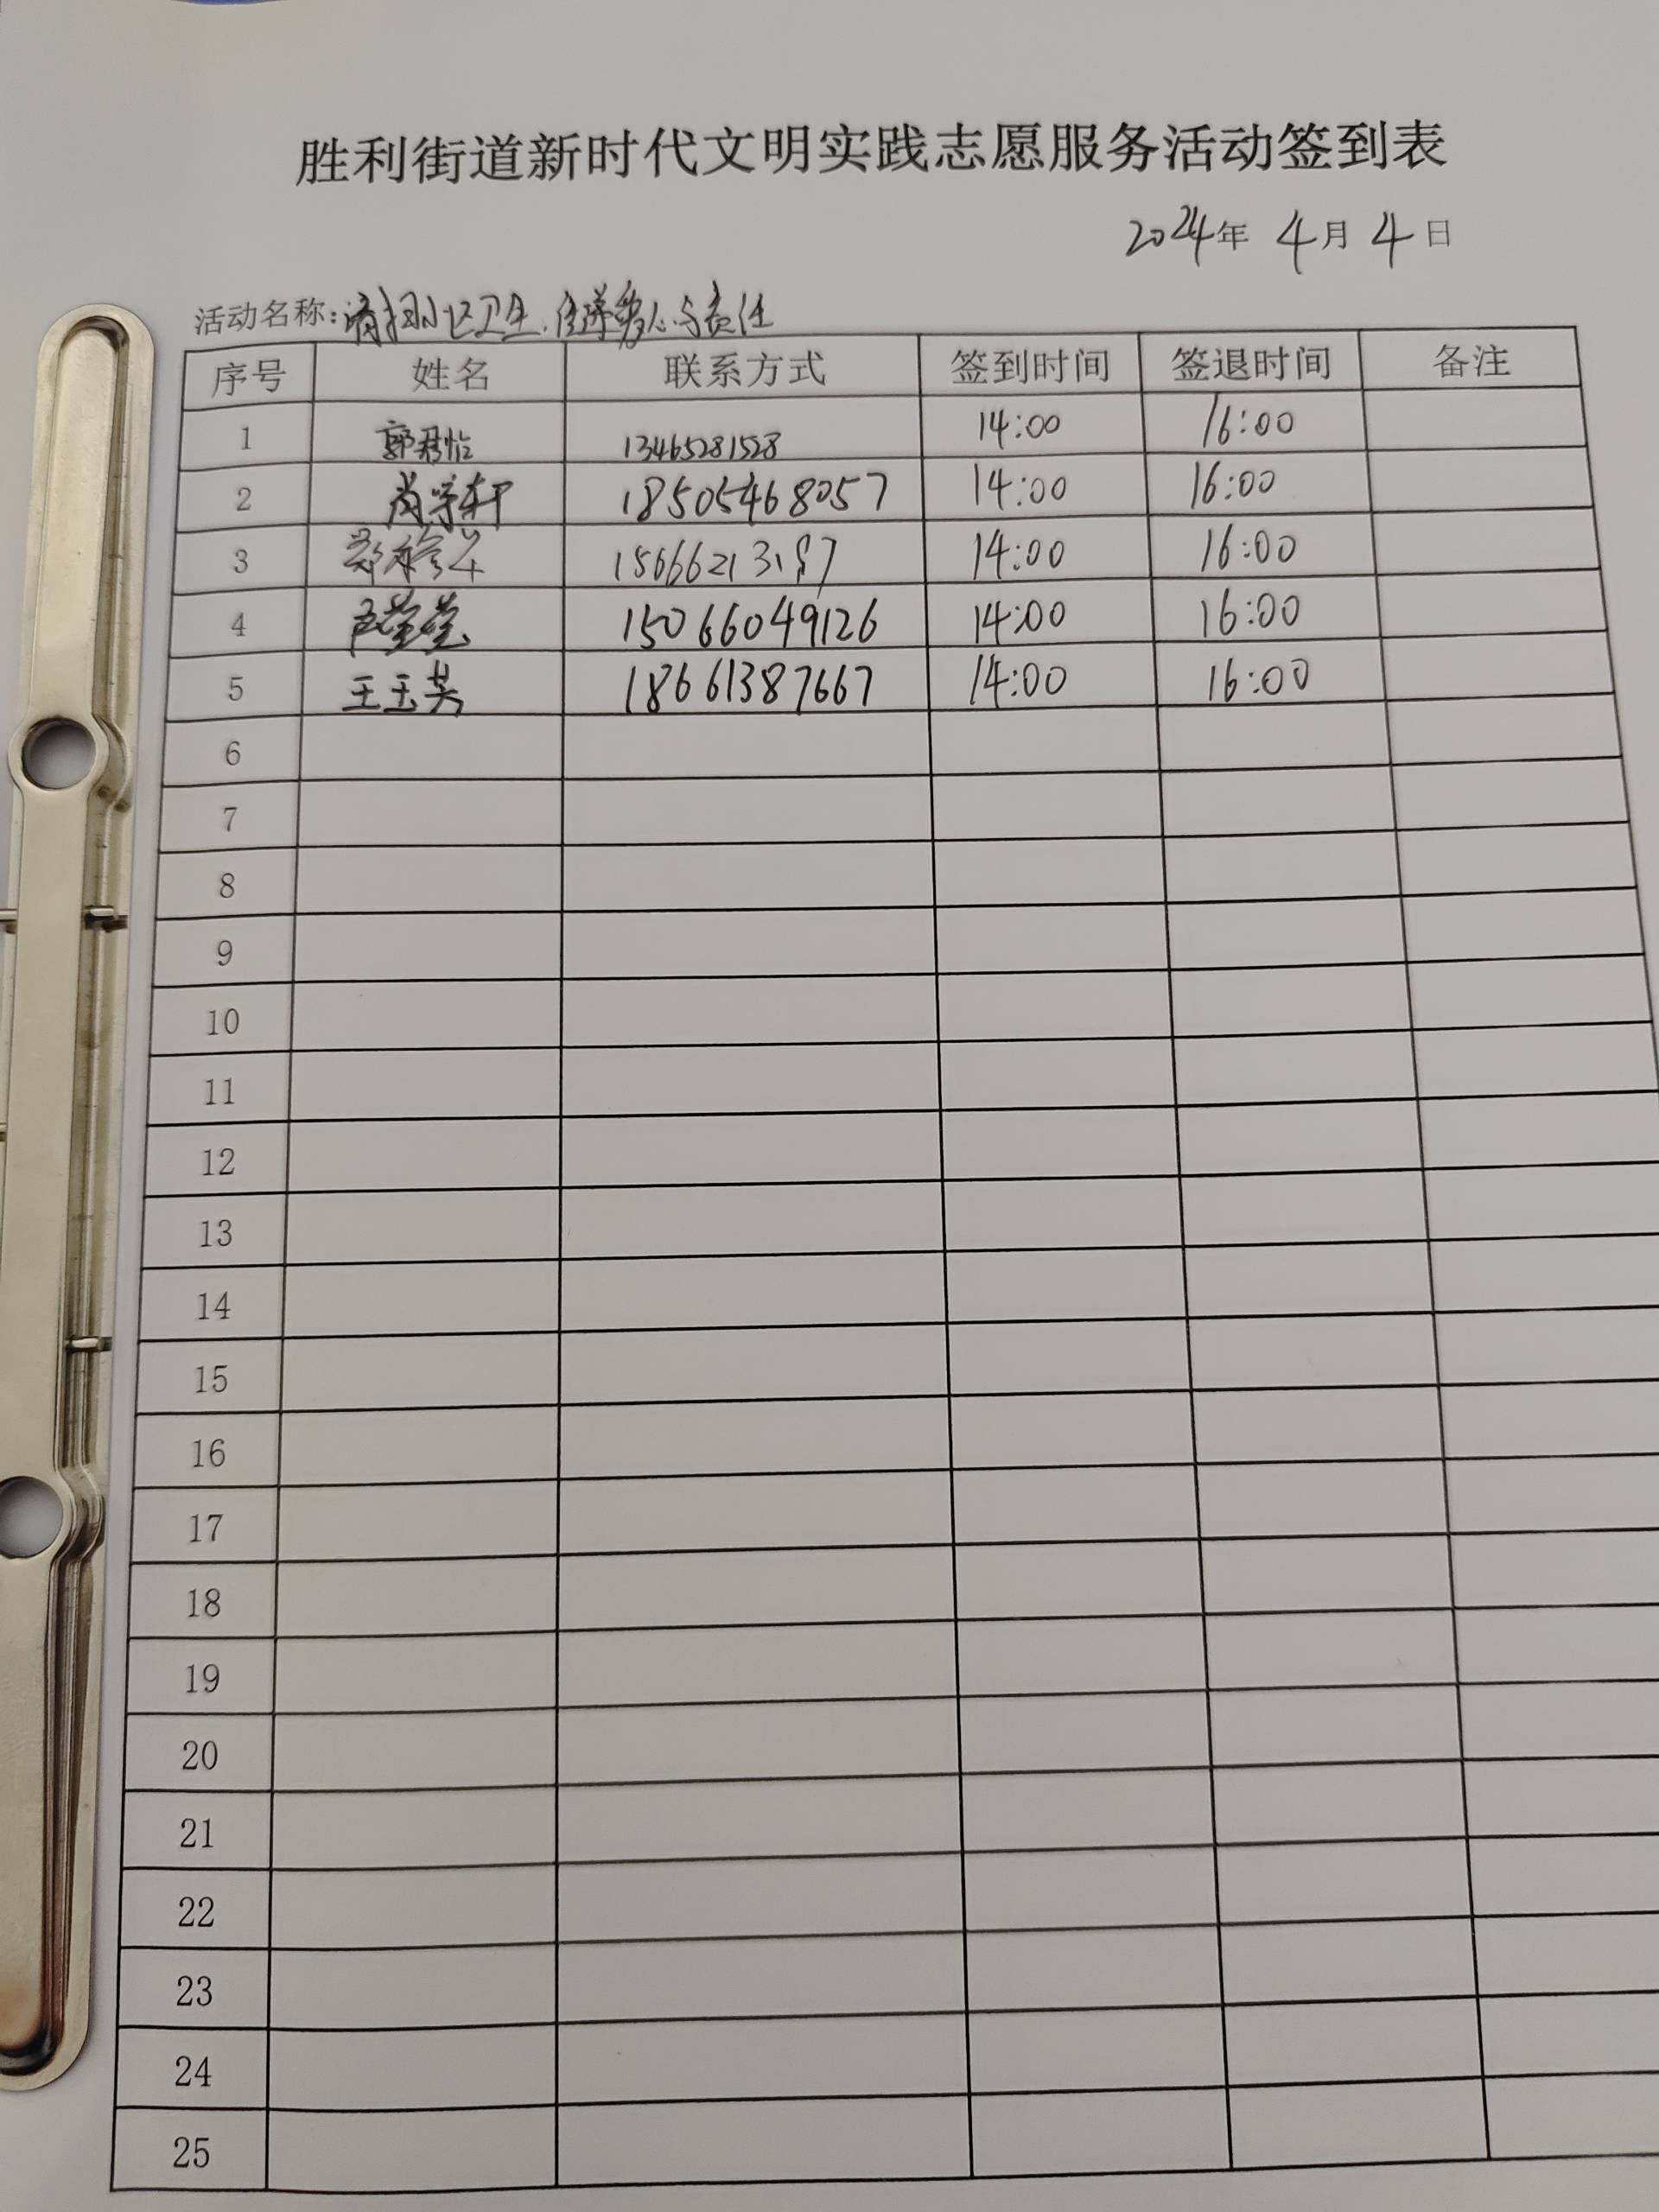 胜利街道新时代文明实践志愿服务活动签到表
2024年 4月 4日
活动名称:清扫小区卫生,传递爱心与责任
序号 姓名 联系方式 签到时间 签退时间 备注
1 郭君怡 13465281528 14:00 16:00
2 尚学轩 18505468057 14:00 16:00
3 14:00 16:00
4 15066049126 14:00 16:00
5 王玉英 18661387667 14:00 16:00
6
7
8
9
10
11
12
13
14
15
16
17
18
19
20
21
22
23
24
25